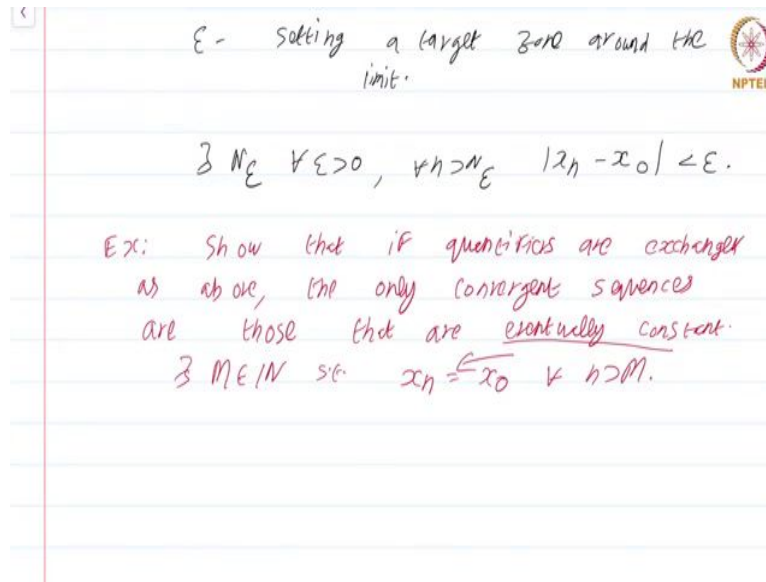 ε - setting a target zone around the
limit.
NPTEL
∃ N_ε ∀ε>0, ∀n>N_ε |x_n - x_0| < ε.
Ex: Show that if quantifiers are exchanged
as above, the only convergent sequences
are those that are eventually constant.
∃ M ∈ ℕ s.t. x_n = x_0 ∀ n>M.